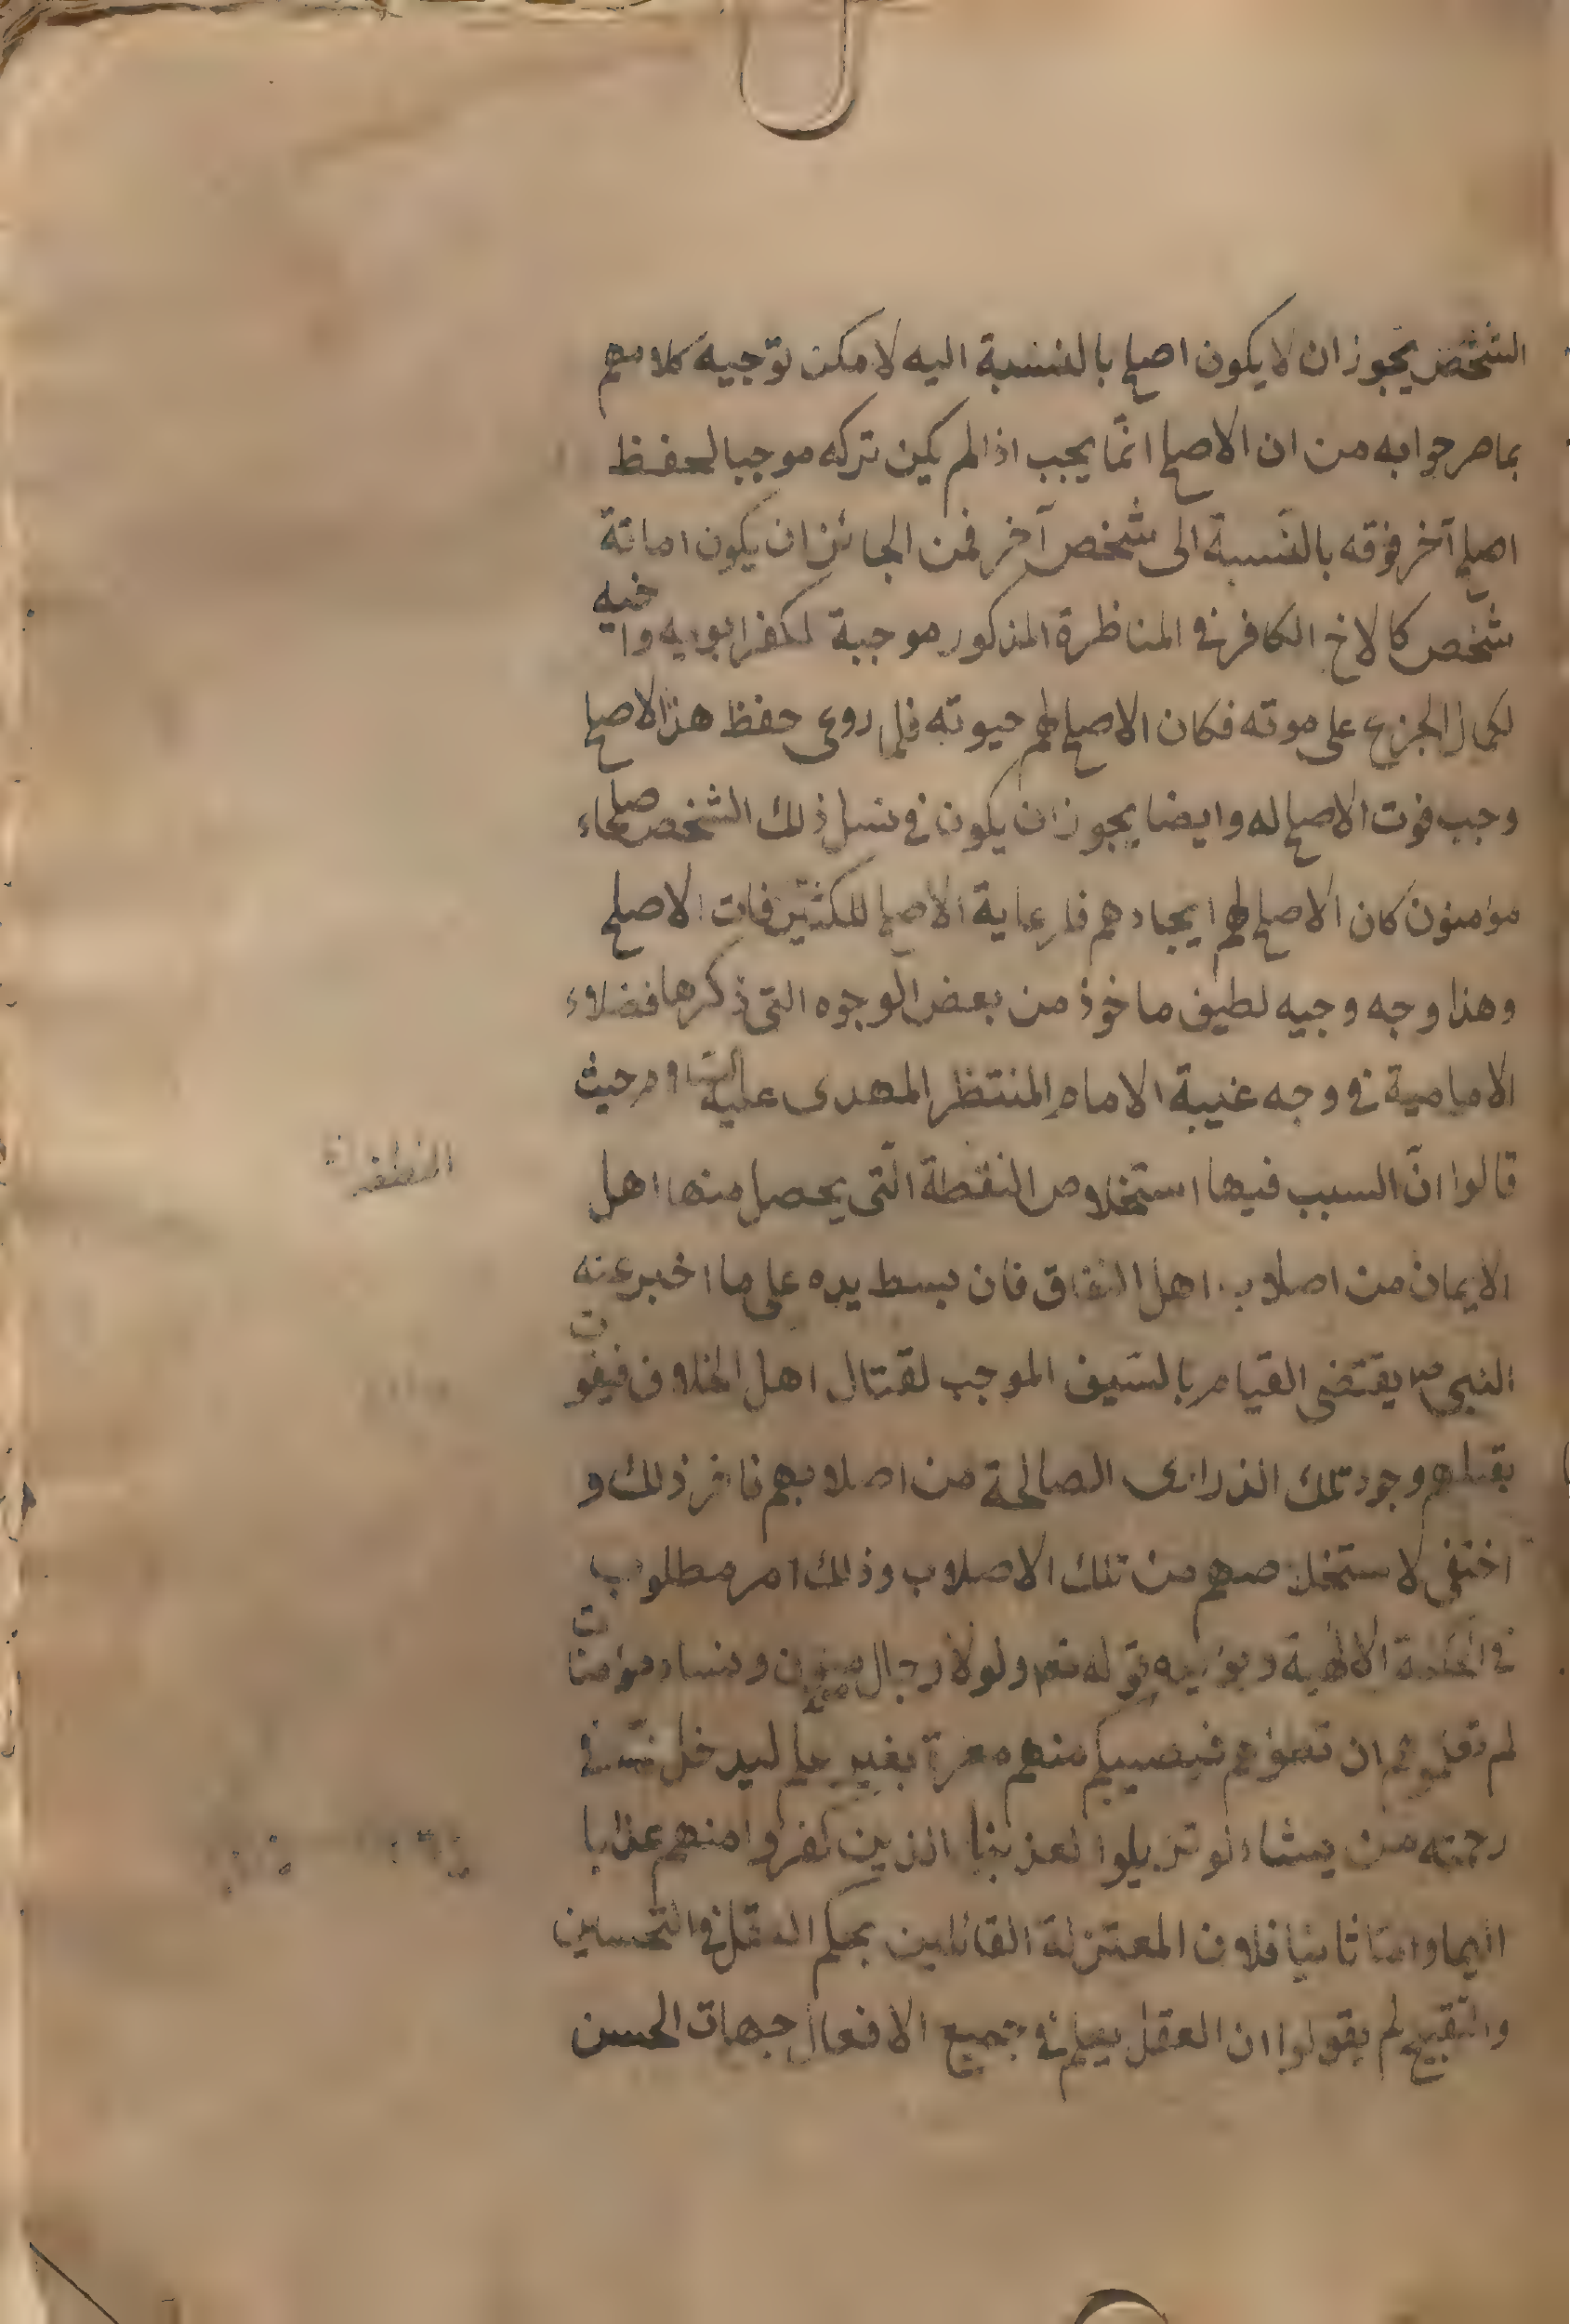 الشخص يجوز ان لا يكون اصلح بالنسبة اليه لامكن توجيه كلامهم
بما مر جوابه من ان الاصلح انمّا يجب اذا لم يكن تركه موجبا لحفظ
اصلح آخر فوقه بالنّسبة الى شخص آخر فمن الجائز ان يكون اماتة
شخص كالاخ الكافر في المناظرة المذكور موجبة لكفر ابويه واخيه
لكمال الجزع على موته فكان الاصلح لهم حيوته فلما روعى حفظ هذا الاصلح
وجب فوت الاصلح له وايضا يجوز ان يكون في نسل ذلك الشخص صلحاء
مؤمنون كان الاصلح لهم ايجادهم فلرعاية الاصلح للكثير فات الاصلح
وهذا وجه وجيه لطيف ماخوذ من بعض الوجوه التى ذكرها فضلاء
الامامية في وجه غيبة الامام المنتظر المهدى عليه السّلام حيث
قالوا انّ السبب فيها استخلاص النقطة الّتى يحصل منها اهل
النطفة
الايمان من اصلاب اهل النفاق فان بسط يده على ما اخبر عنه
النبى ص يقتضى القيام بالسّيف الموجب لقتال اهل الخلاف فيفوت
بقتلهم وجود تلك الذرارى الصالحة من اصلابهم فاخر ذلك و
اختفى لاستخلاصهم من تلك الاصلاب وذلك امر مطلوب
في الحكمة الالهية ويؤيده قوله تعم ولولا رجال مؤمنون ونساء مؤمنات
لم تعلموهم ان تطؤهم فيصيبكم منهم معرة بغير علم ليدخل الله في
رحمته من يشاء لو تزيلوا لعذبنا الذين كفروا منهم عذابا
اليما وامّا ثانيا فلان المعتزلة القائلين بحكم العقل في التحسين
والتقبيح لم يقولوا ان العقل يعلم في جميع الافعال جهات الحسن